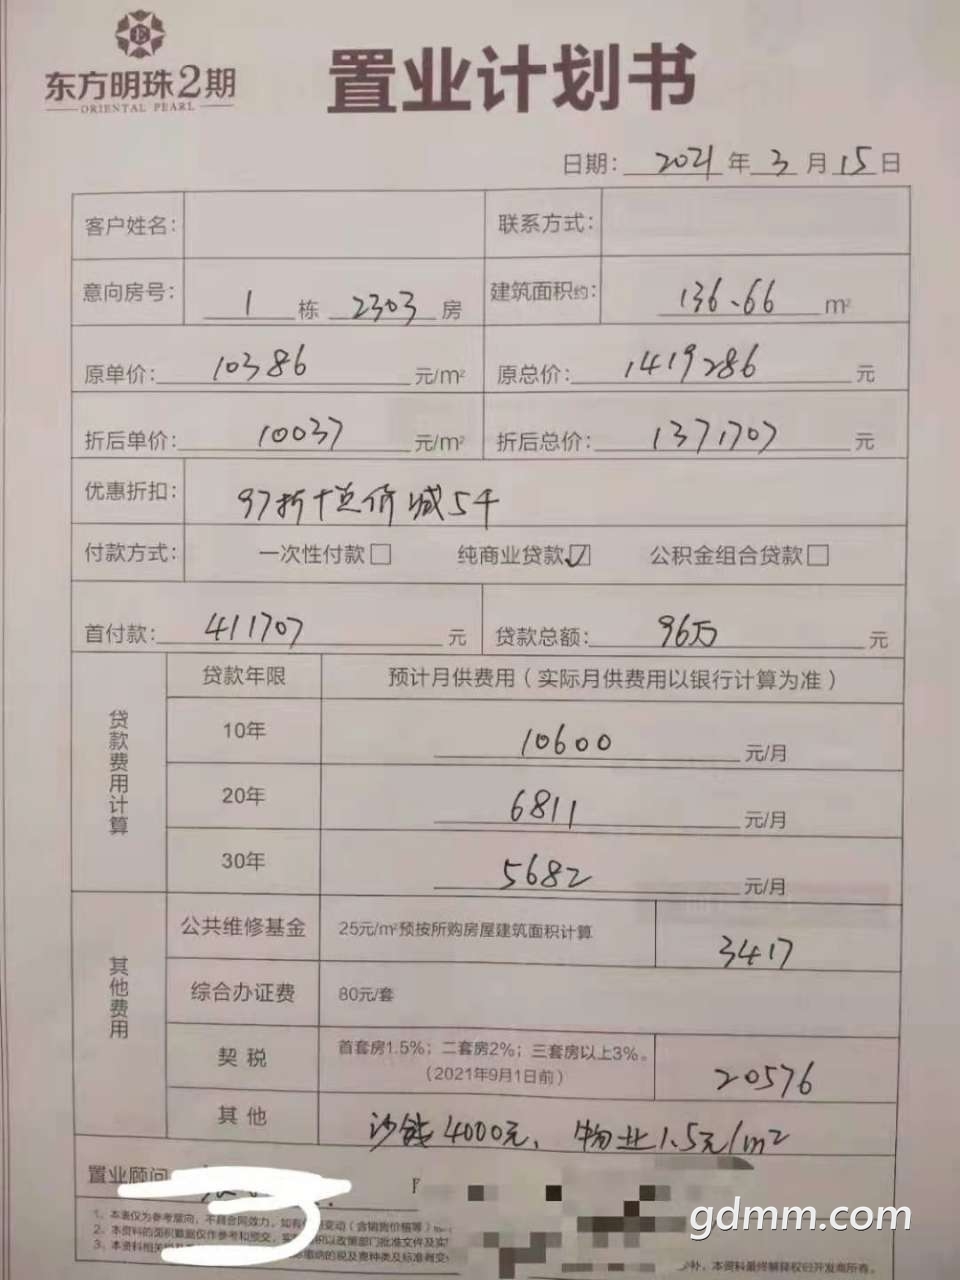 东方明珠2期
ORIENTAL PEARL
置业计划书
日期: 2021 年 3 月 15 日
客户姓名: 联系方式:
意向房号: 1 栋 2303 房 建筑面积约: 136.66 m²
原单价: 10386 元/m² 原总价: 1419286 元
折后单价: 10037 元/m² 折后总价: 1371707 元
优惠折扣: 97折+总价减5千
付款方式: 一次性付款□ 纯商业贷款☑ 公积金组合贷款□
首付款: 411707 元 贷款总额: 96万 元
贷款费用计算
贷款年限 预计月供费用（实际月供费用以银行计算为准）
10年 10600 元/月
20年 6811 元/月
30年 5682 元/月
其他费用
公共维修基金 25元/m²预按所购房屋建筑面积计算 3417
综合办证费 80元/套
契税 首套房1.5%；二套房2%；三套房以上3%。
（2021年9月1日前） 20576
其他 4000元、物业1.5元/m²
置业顾问
1、本表仅为参考意向，不具合同效力，如有 变动（含销售价格等）
2、本资料的面积数据仅作参考和预交，实 以政策部门批准文件及实
3、本资料相关 缴纳的税及费种类及标准有变 补，本资料最终解释权归开发商所有。
gdmm.com